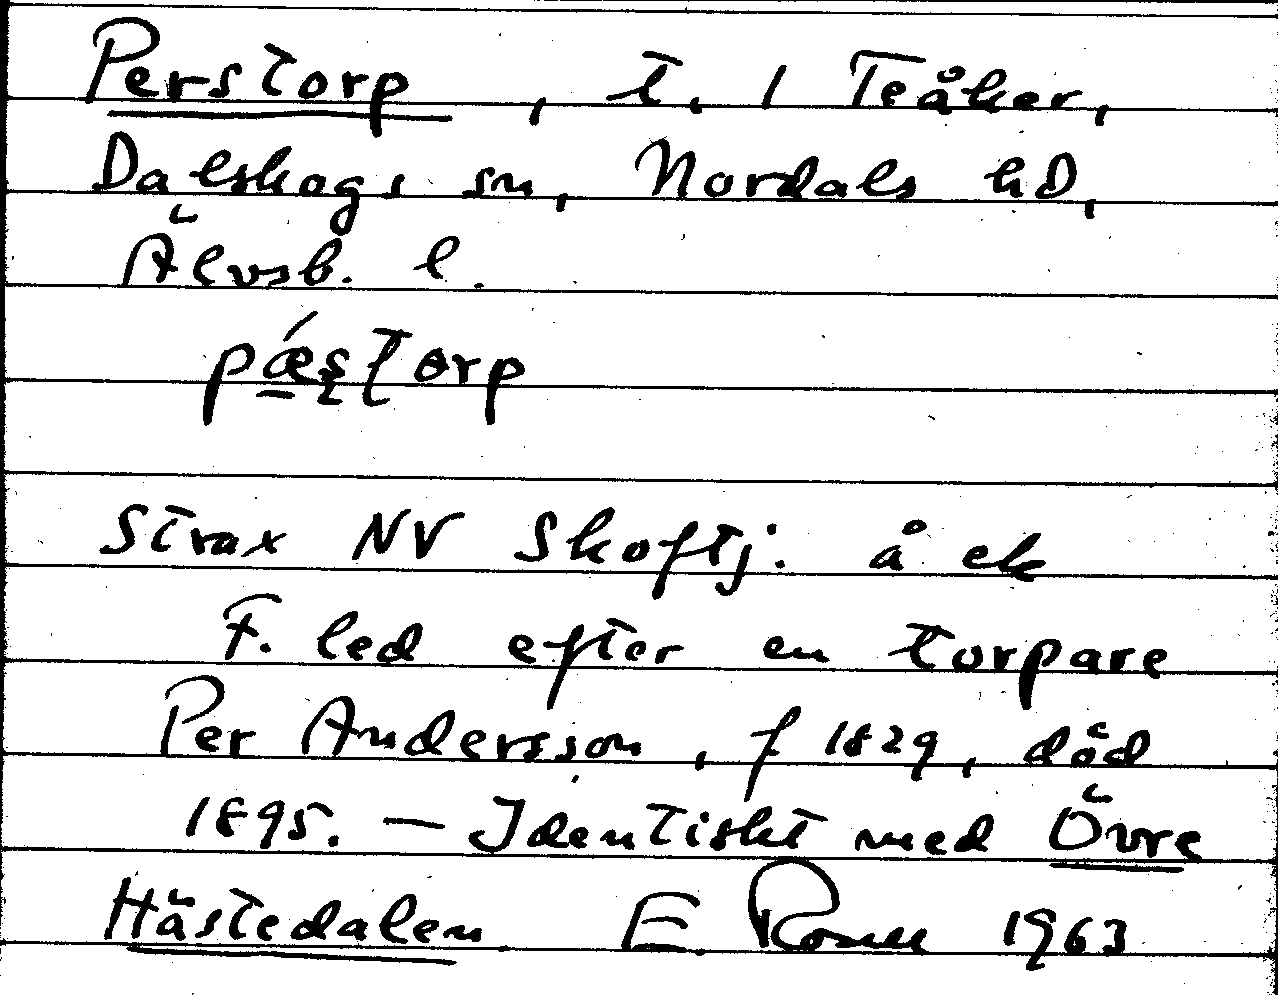 Perstorp, t. 1 Teåker,
Dalskogs sn, Nordals hd,
Älvsb. l.
pǽstorp
Strax NV Skoftj. å ek
F. led efter en torpare
Per Andersson, f 1829, död
1895. — Identiskt med Övre
Hästedalen E. 1963